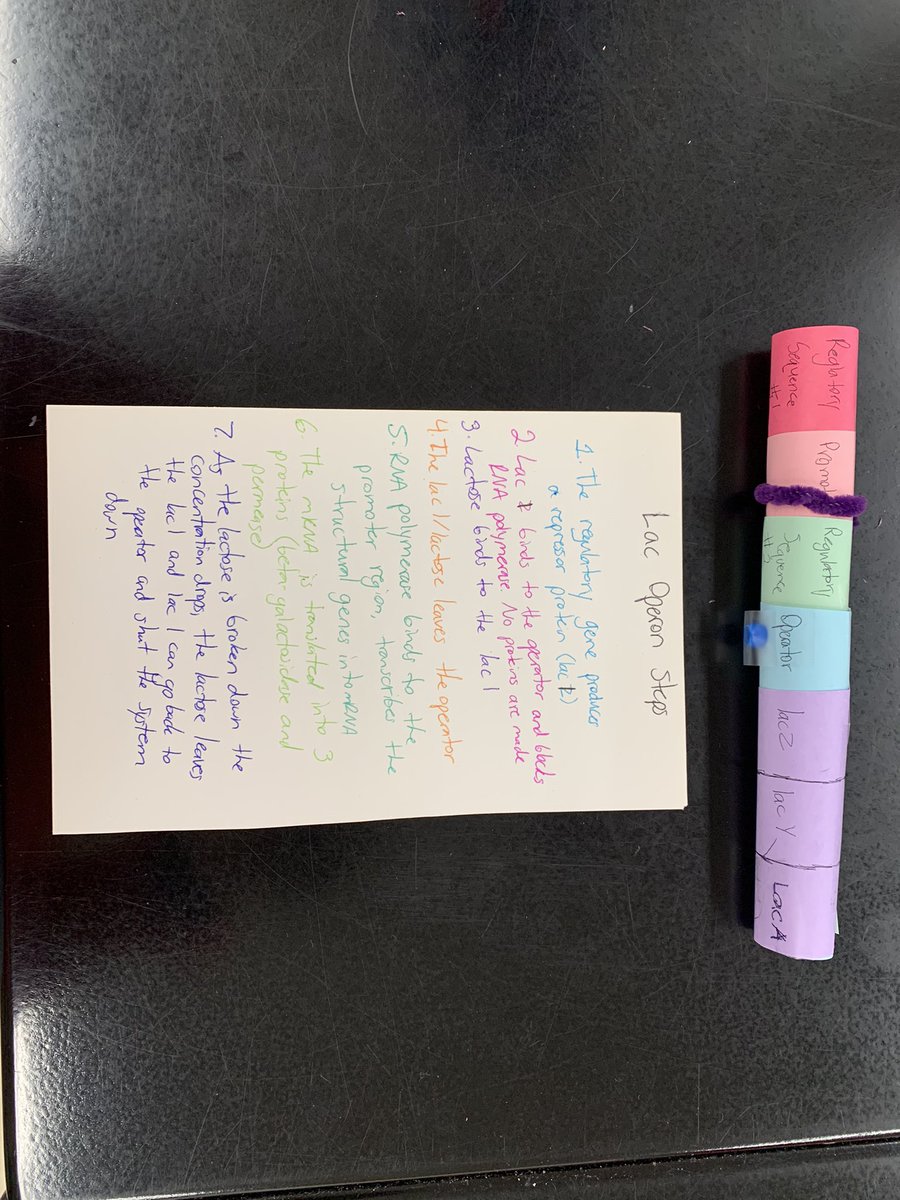 Lac Operon Steps
1. The regulatory gene produces
a repressor protein (lac I)
2 Lac I binds to the operator and blocks
RNA polymerase. No proteins are made
3. Lactose binds to the lac I
4. The lac I/lactose leaves the operator
5. RNA polymerase binds to the
promoter region, transcribes the
structural genes into mRNA
6. The mRNA is translated into 3
proteins (beta-galactosidase and
permease)
7. As the lactose is broken down the
concentration drops, the lactose leaves
the lac I and lac I can go back to
the operator and shut the system
down
Regulatory
Sequence
#1
Regulatory
Sequence
Operator
lacZ
lacY
LacA